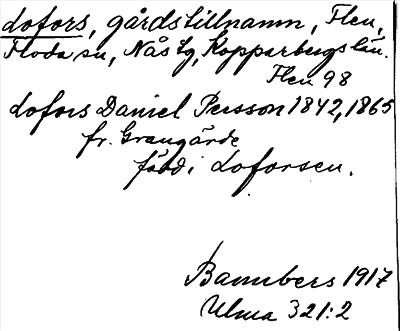 Lofors, gårdstillnamn, Flen,
Floda sn, Nås tg, Kopparbergs län.
Flen 98
Lofors Daniel Persson 1842, 1865
fr. Grangärde
född i Loforsen.
Bannbers 1917
Ulma 321:2